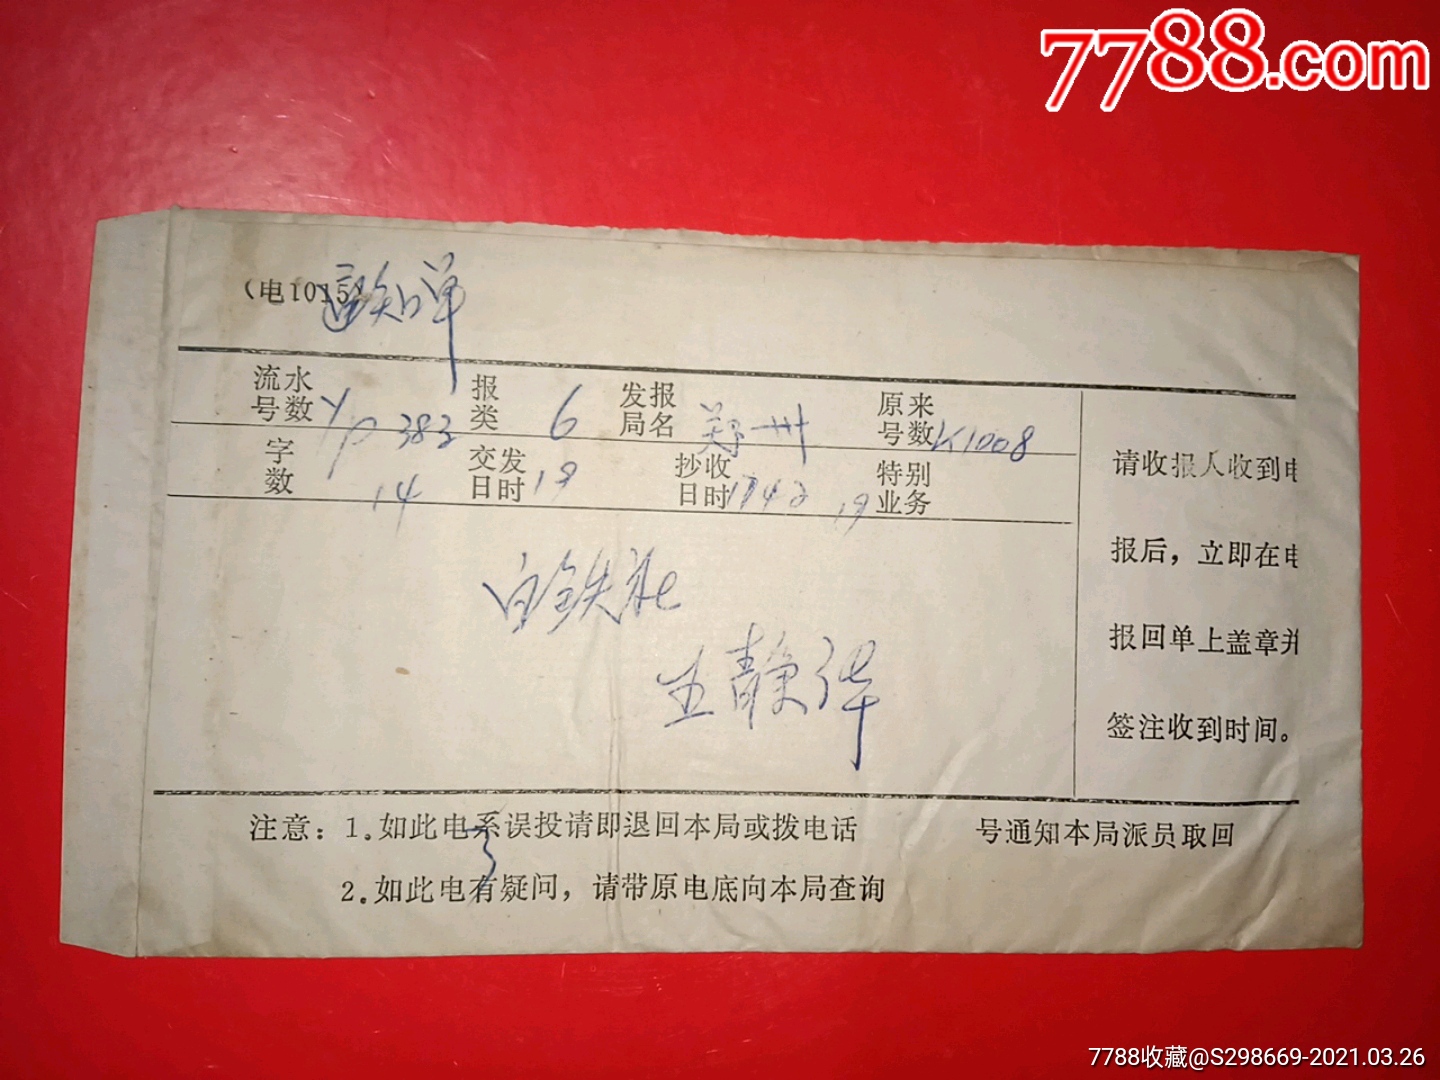 7788.com
(电1015)
通知单
流水号数 yp 383 报类 6 发报局名 郑州 原来号数 K1008
字数 14 交发日时 19 抄收日时 1742 19 特别业务
请收报人收到电
报后，立即在电
报回单上盖章并
签注收到时间。
白铁社
王静华
注意：1.如此电系误投请即退回本局或拨电话 号通知本局派员取回
2.如此电有疑问，请带原电底向本局查询
7788收藏@S298669-2021.03.26